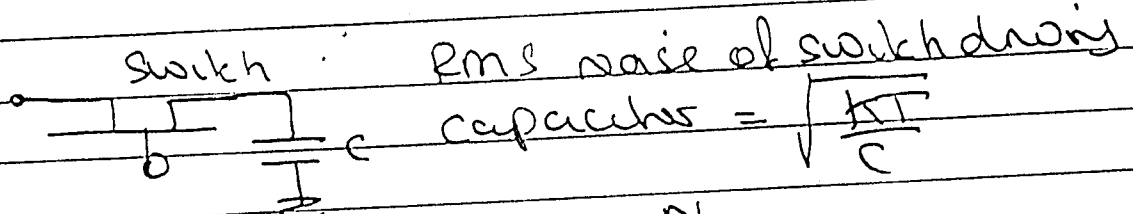 switch : RMS noise of switch driving
C capacitor = √(KT/C)